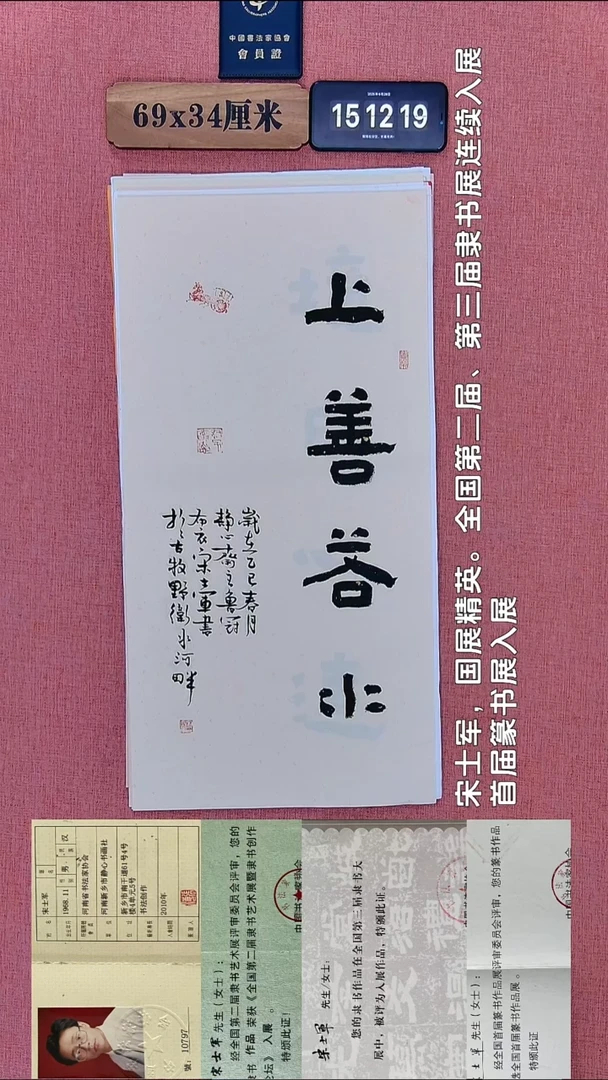 中國書法家協會
會員證
69x34厘米
15 12 19
上善若水
歲在乙巳春月
静心齋主魯冠
布衣宋士軍書
於古牧野衛水河畔
宋士军，国展精英。全国第二届、第三届隶书展连续入展
首届篆书展入展
宋士军
1968.11 男 汉
河南省书法家协会
河南新乡市静心书画社
新乡市南干道61号4号
楼4单元5号
书法创作
2010年
號：10797
宋士军 先生（女士）：
经全国第二届隶书艺术展评审委员会评审，您的
隶书 作品 荣获《全国第二届隶书艺术展暨隶书创作
论坛》入展 。
特颁此证！
宋士军 先生/女士：
您的隶书作品在全国第三届隶书大
展中，被评为入展作品，特颁此证。
士军 先生（女士）：
经全国首届篆书作品展评审委员会评审，您的篆书作品
全国首届篆书作品展。
特颁此证